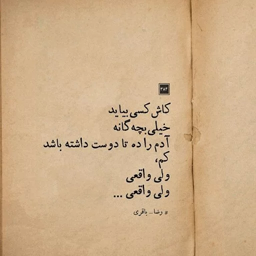 ۳۸۴
کاش کسی بیاید
خیلی بچه گانه
آدم را ده تا دوست داشته باشد
کم،
ولی واقعی
ولی واقعی ...
رضا... باقری